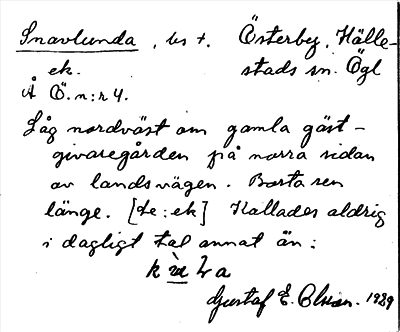 Snavlunda, ls t. Österby, Hälle-
ek. stads sn. Ögl
Å Ö. n:r 4.
Låg nordväst om gamla gäst-
givaregården på norra sidan
av landsvägen. Borta sen
länge. [te:ek] Kallades aldrig
i dagligt tal annat än:
Gustaf E. Olsson. 1929